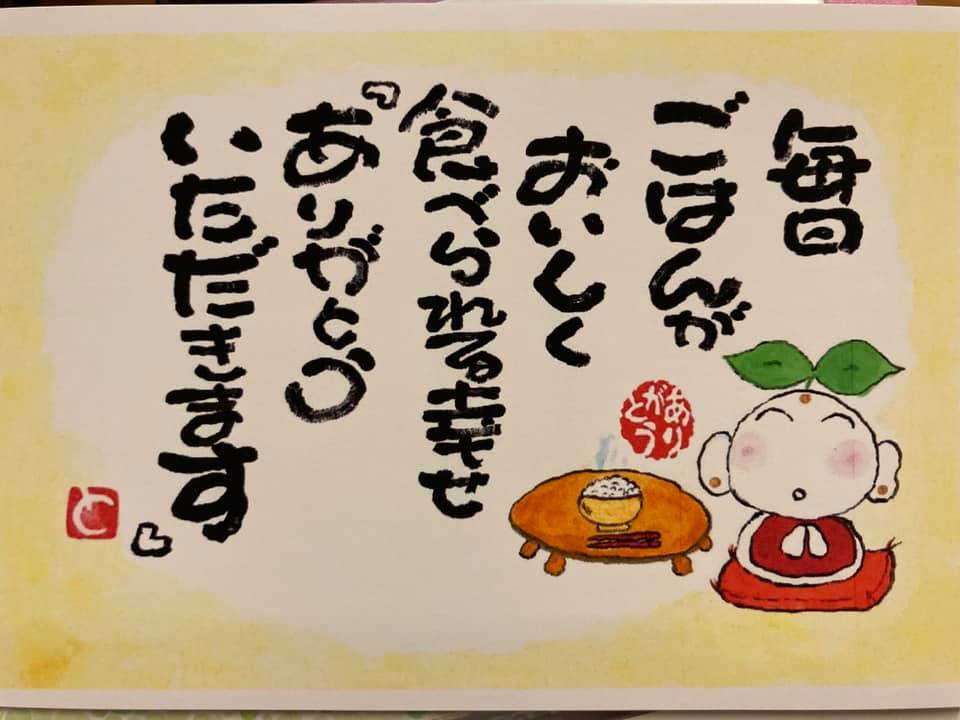 毎日
ごはんが
おいしく
食べられる幸せ
『ありがとう
いただきます』
ありがとう
と